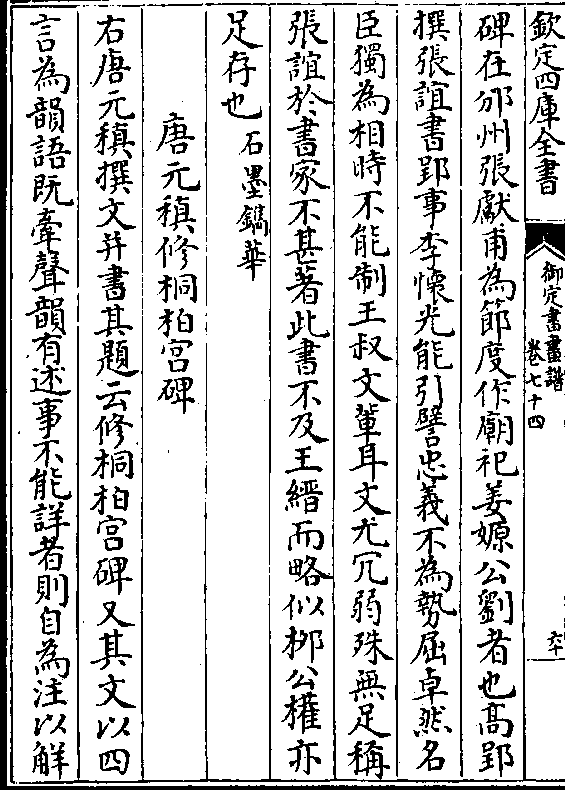 欽定四庫全書
御定書畫譜
卷七十四
六十
碑在邠州張獻甫為節度作廟祀姜嫄公劉者也髙郢
撰張誼書郢事李懷光能引譬忠義不為勢屈卓然名
臣獨為相時不能制王叔文輩耳文尤冗弱殊無足稱
張誼於書家不甚著此書不及王縉而略似栁公權亦
足存也石墨鐫華
唐元稹修桐柏宫碑
右唐元稹撰文并書其題云修桐柏宫碑又其文以四
言為韻語既牽聲韻有述事不能詳者則自為注以解